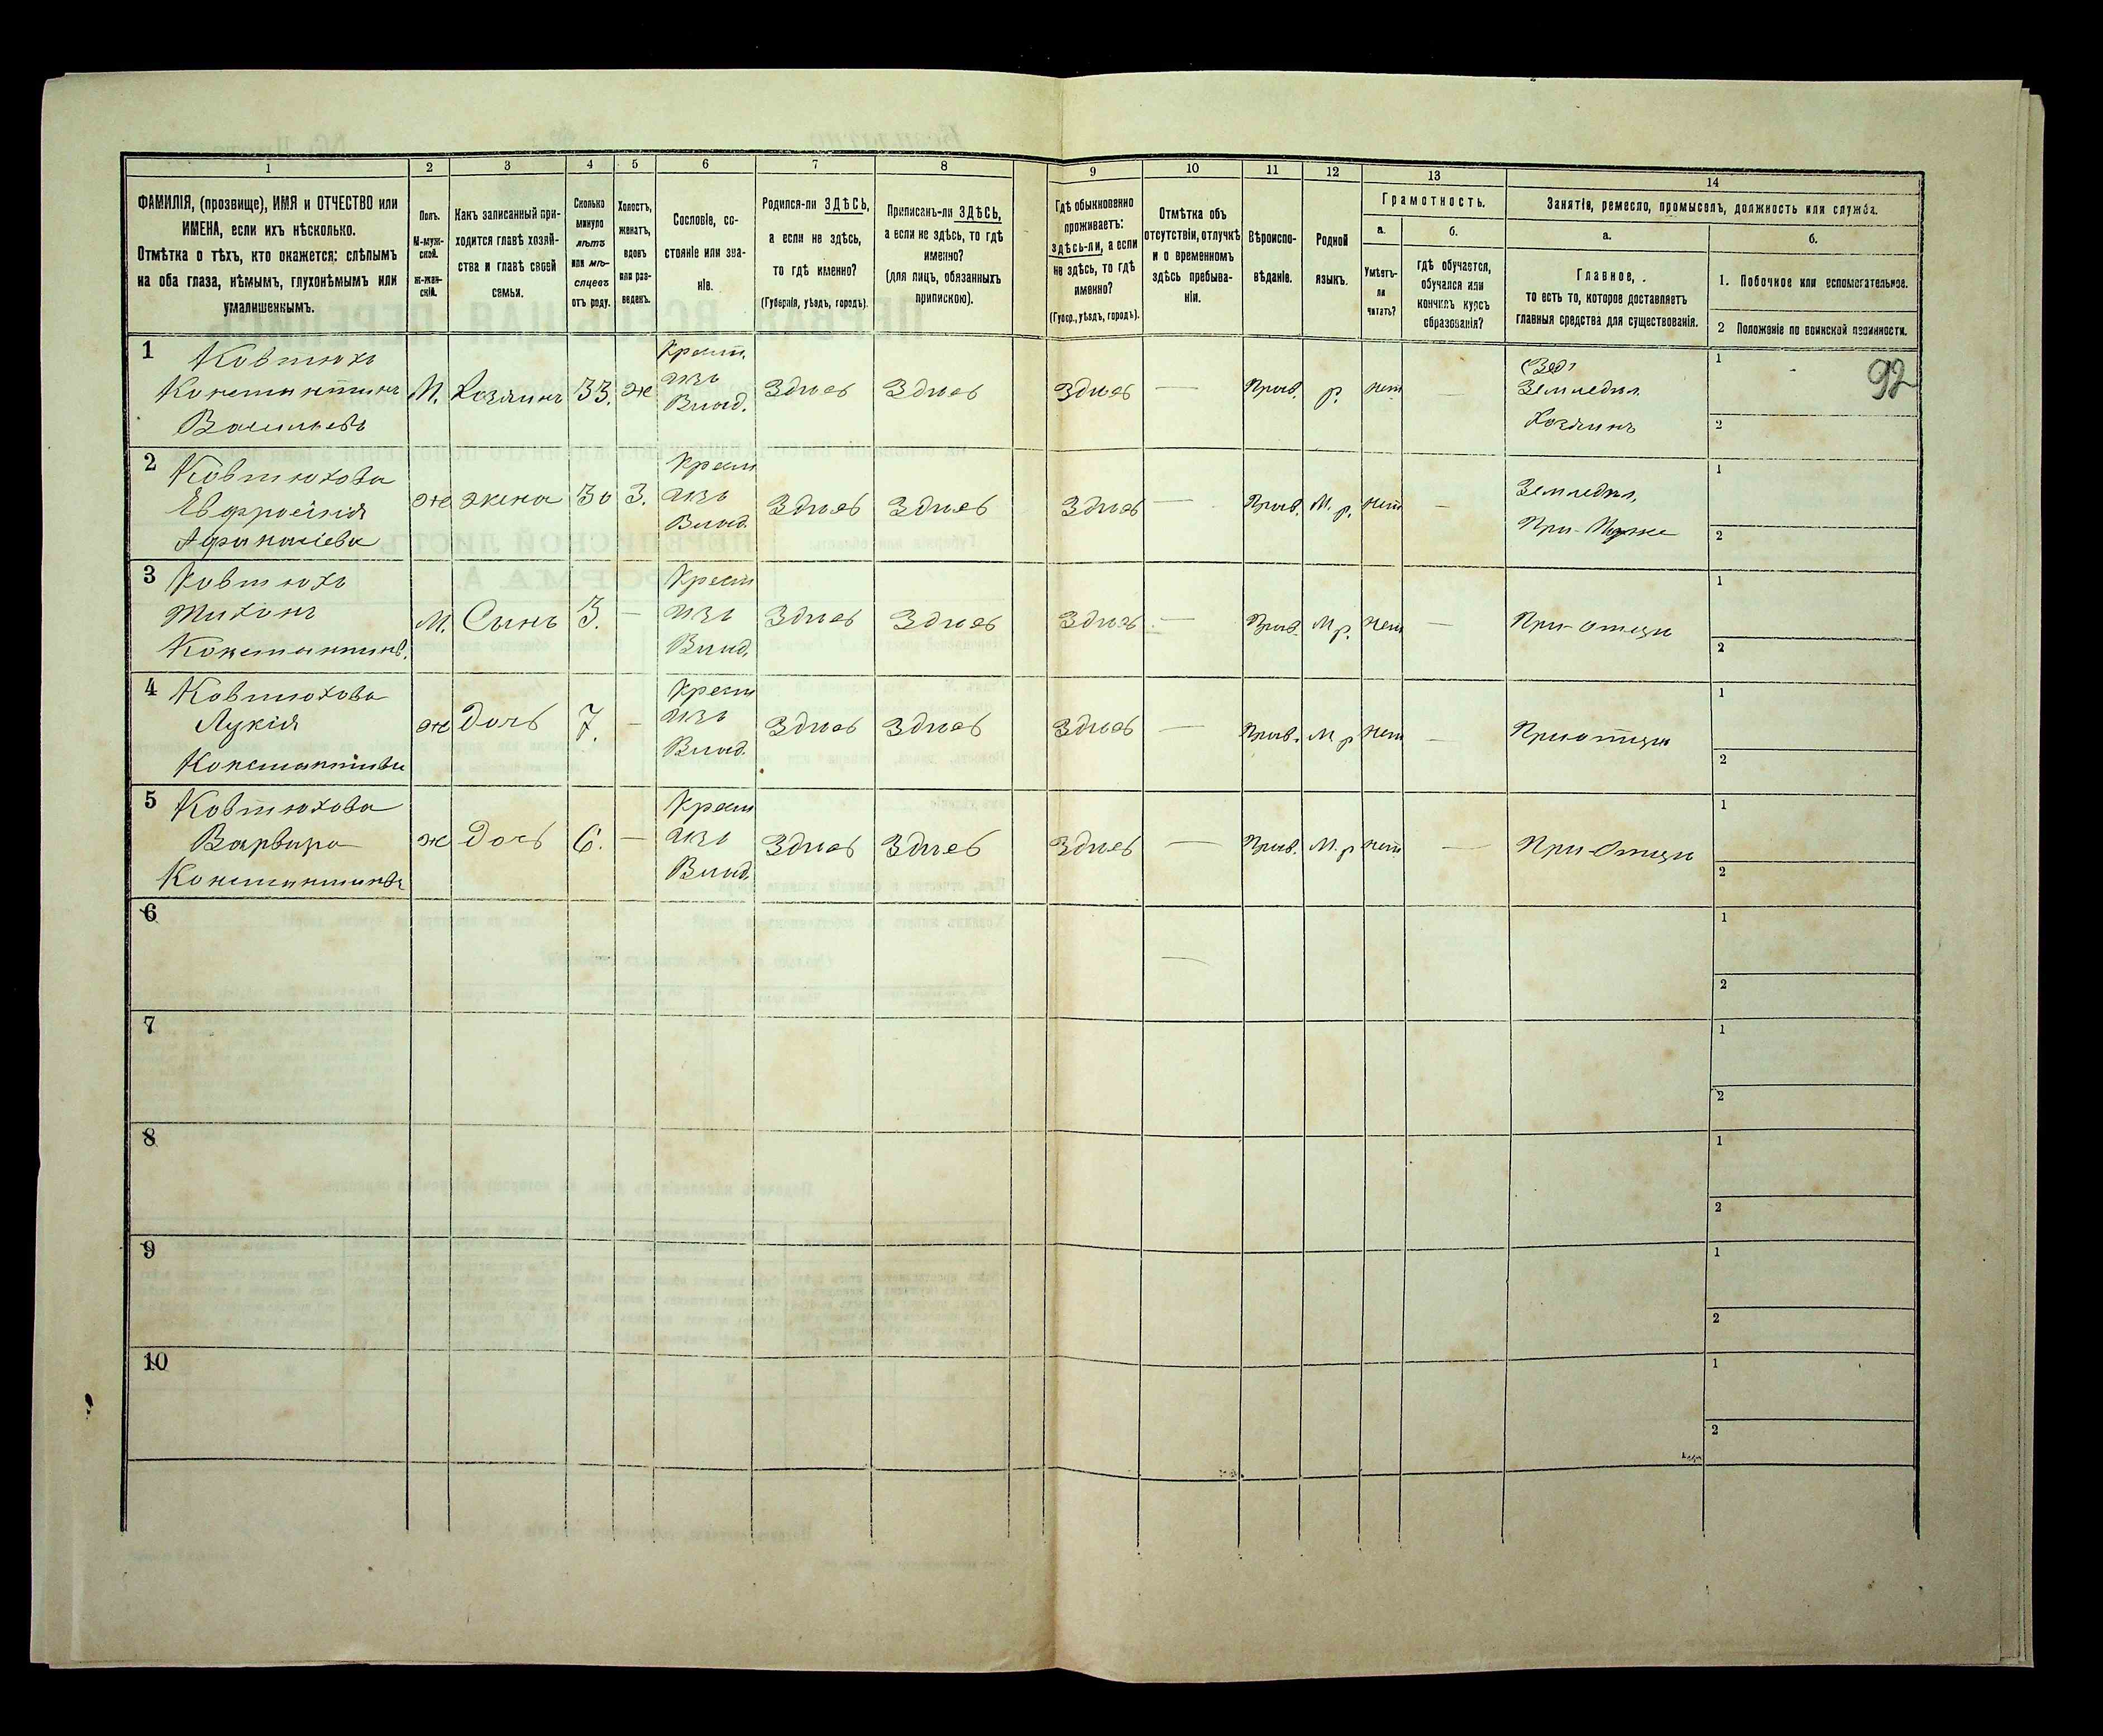 1 2 3 4 5 6 7 8 9 10 11 12 13 14
ФАМИЛІЯ, (прозвище), ИМЯ и ОТЧЕСТВО или
ИМЕНА, если ихъ нѣсколько.
Отмѣтка о тѣхъ, кто окажется: слѣпымъ
на оба глаза, нѣмымъ, глухонѣмымъ или
умалишеннымъ.
Полъ.
М-муж-
ской.
Ж-жен-
скій.
Какъ записанный при-
ходится главѣ хозяй-
ства и главѣ своей
семьи.
Сколько
минуло
лѣтъ
или мѣ-
сяцевъ
отъ роду.
Холостъ,
женатъ,
вдовъ
или раз-
веденъ.
Сословіе, со-
стояніе или зва-
ніе.
Родился-ли ЗДѢСЬ,
а если не здѣсь,
то гдѣ именно?
(Губернія, уѣздъ, городъ).
Приписанъ-ли ЗДѢСЬ,
а если не здѣсь, то гдѣ
именно?
(для лицъ, обязанныхъ
припискою).
Гдѣ обыкновенно
проживаетъ:
здѣсь-ли, а если
не здѣсь, то гдѣ
именно?
(Губер., уѣздъ, городъ).
Отмѣтка объ
отсутствіи, отлучкѣ
и о временномъ
здѣсь пребыва-
ніи.
Вѣроиспо-
вѣданіе.
Родной
языкъ.
Грамотность.
а.
Умѣетъ-
ли
читать?
б.
гдѣ обучается,
обучался или
кончилъ курсъ
образованія?
Занятія, ремесло, промыселъ, должность или служба.
а.
Главное,
то есть то, которое доставляетъ
главныя средства для существованія.
б.
1. Побочное или вспомогательное.
2 Положеніе по воинской повинности.
92
1 Ковтюхъ
Константинъ
Васильевъ
М. Хозяинъ 33. ж
Крест.
изъ
Влад.
Здѣсь Здѣсь Здѣсь — Прав. р. нет —
Земледѣл.
Хозяинъ
1
2
2 Ковтюхова
Евфросинія
Афанасіева
ж жена 30 З.
Крест
изъ
Влад.
Здѣсь Здѣсь Здѣсь — Прав. М. р. нет —
Земледѣл.
При-Муже
1
2
3 Ковтюхъ
Тихонъ
Константинов.
М. Сынъ 3. —
Крест
изъ
Влад.
Здѣсь Здѣсь Здѣсь — Прав. М р. нет —
При-отцѣ
1
2
4 Ковтюхова
Лукія
Константинова
ж Дочь 7. —
Крест
изъ
Влад.
Здѣсь Здѣсь Здѣсь — Прав. М р нет —
При отцѣ
1
2
5 Ковтюхова
Варвара
Константинов
ж Дочь 6. —
Крест
изъ
Влад.
Здѣсь Здѣсь Здѣсь — Прав. М. р нет —
При-Отцѣ
1
2
6
1
2
7
1
2
8
1
2
9
1
2
10
1
2